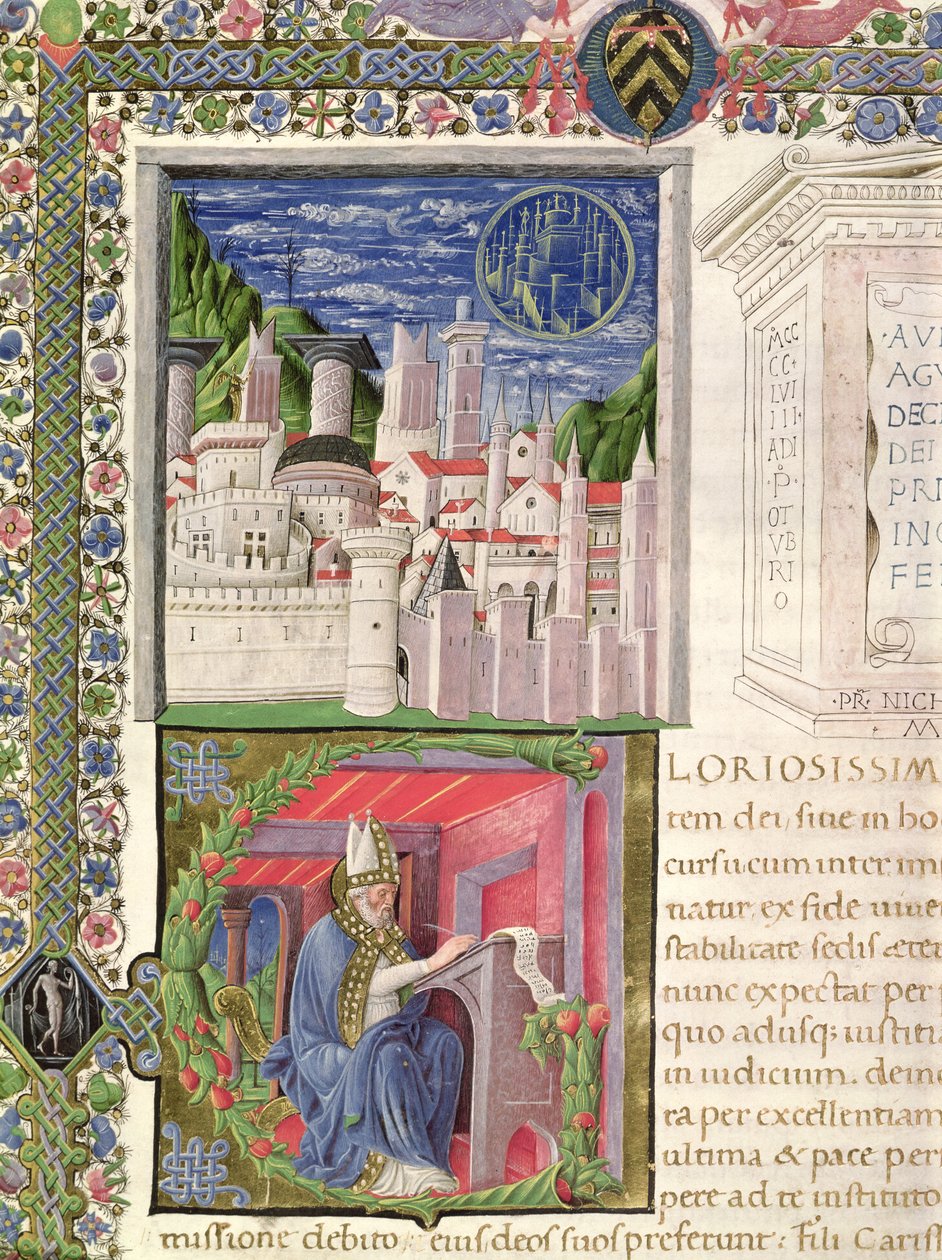 M̊CC
CC+
LVI
III·
ADI
·P̊·
OT
VB
RI
O
·AV
AGV
DECI
DEI
PR
INC
FE
·PR̃· NICH
M
LORIOSISSIM
tem dei, siue in ho
cursu cum inter im
natur, ex fide uiue
stabilitate sedis æter
nunc expectat per
quo adusq; iustiti
in iudicium. deinc
ra per excellentiam
ultima & pace per
pere ad te instituto
missione debito eius deos suos preferunt: Fili Cariss